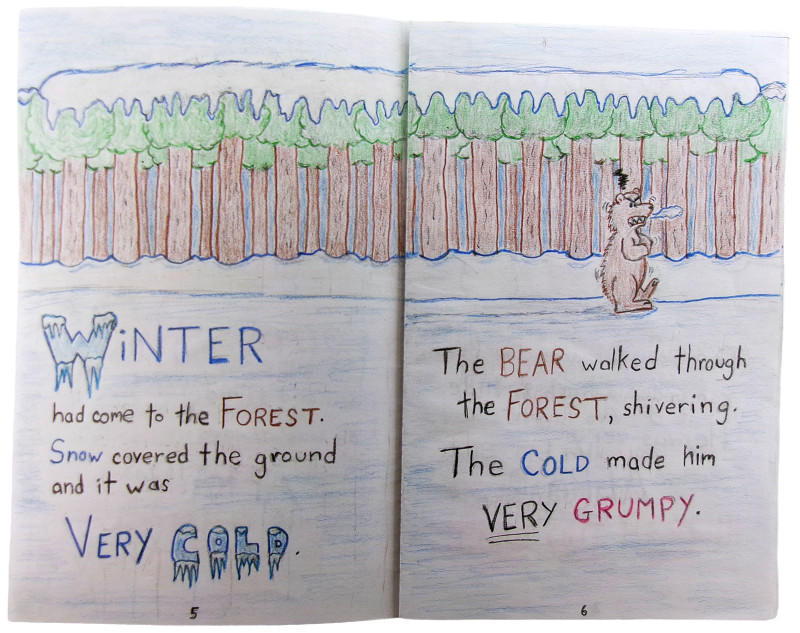 WiNTER
had come to the FOREST.
Snow covered the ground
and it was
VERY COLD.
5
The BEAR walked through
the FOREST, shivering.
The COLD made him
VERY GRUMPY.
6